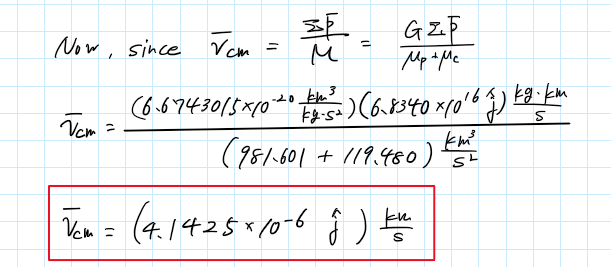 Now, since v̄cm = Σp̄ / M = GΣp̄ / μp + μc
v̄cm = (6.6743015×10^-20 km³/kg·s²)(6.8340×10^16 ĵ) kg·km/s / (981.601 + 119.480) km³/s²
v̄cm = (4.1425×10^-6 ĵ) km/s